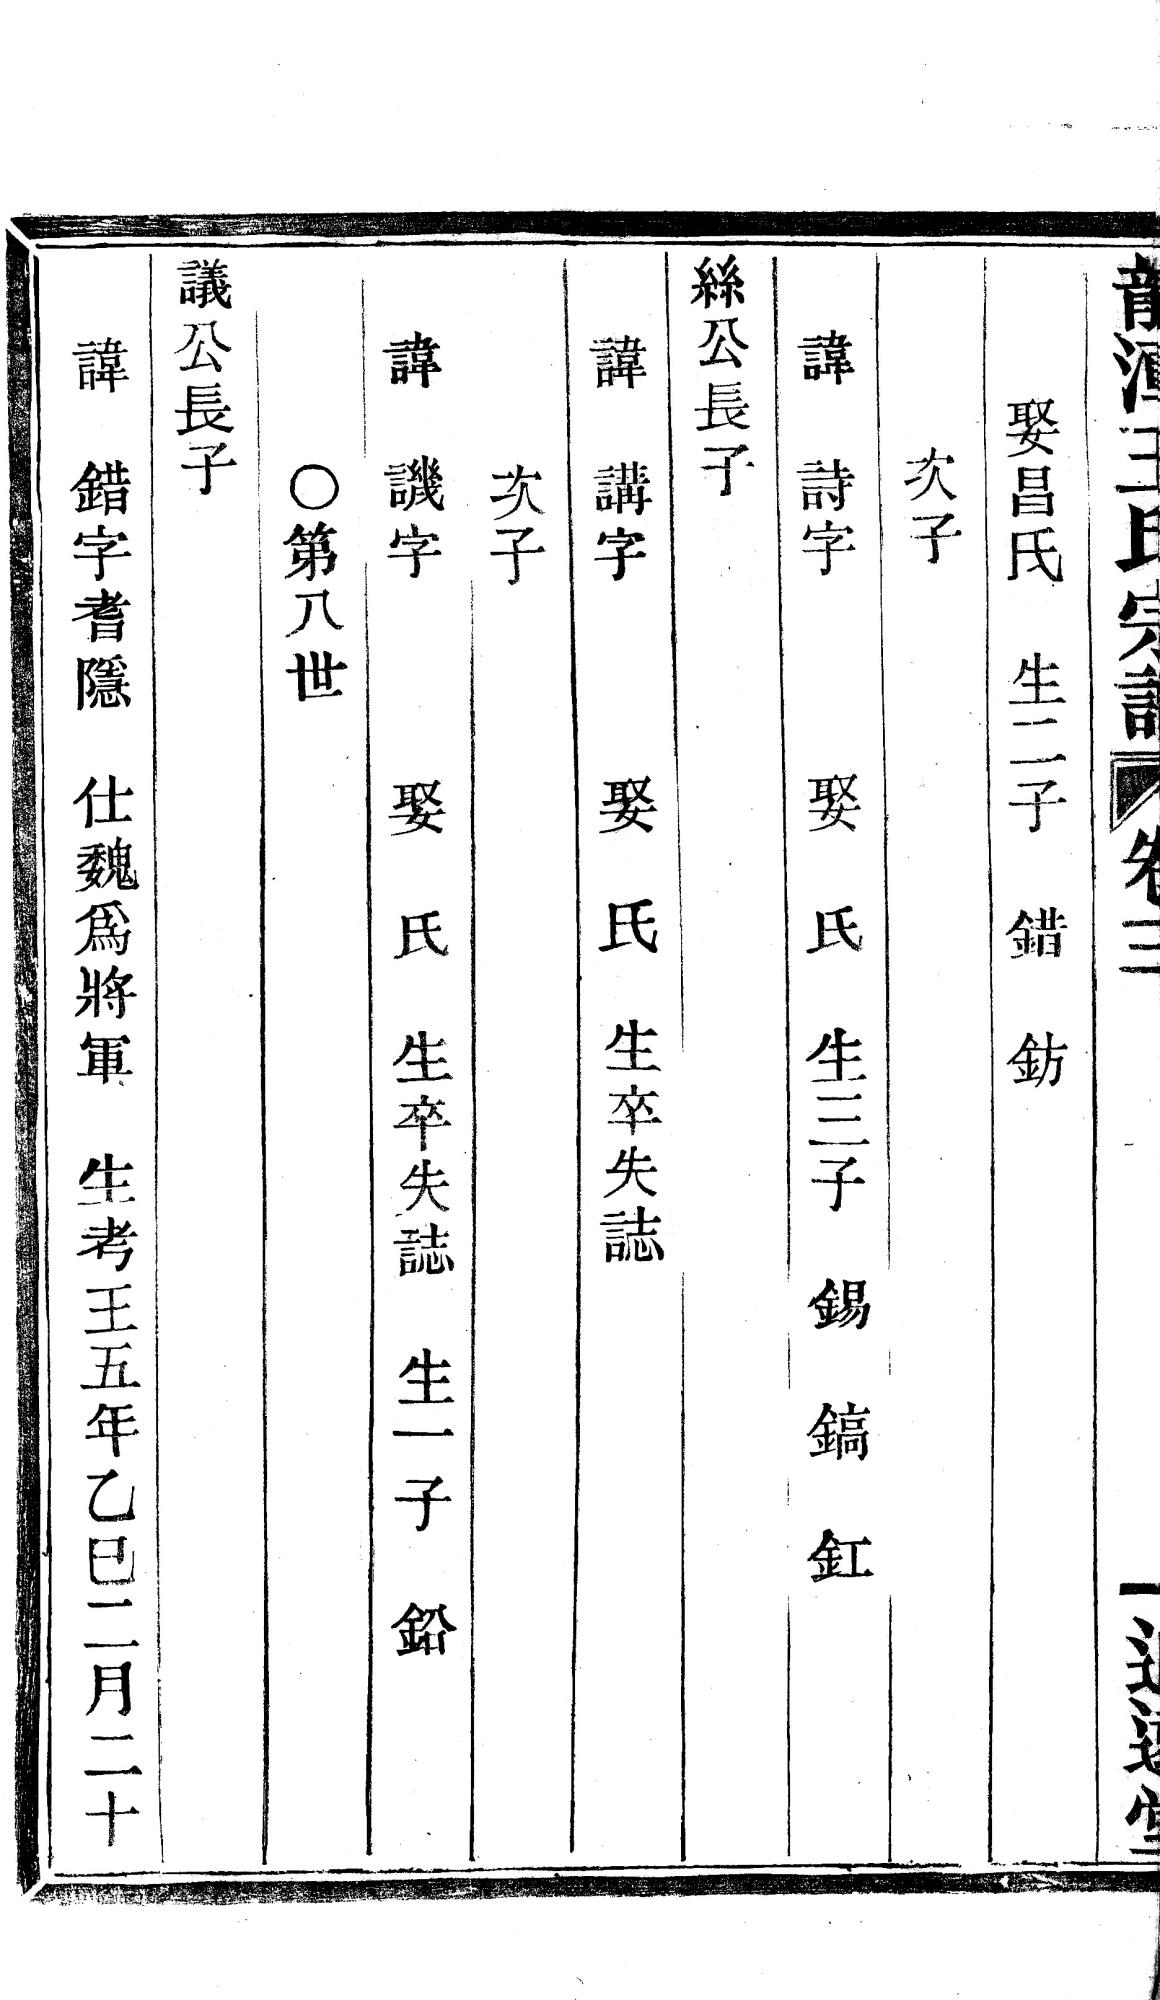 王氏宗譜 卷三 一 追遠堂
娶昌氏 生二子 錯 鈁
次子
諱 詩字 娶 氏 生三子 錫 鎬 釭
絲公長子
諱 講字 娶 氏 生卒失誌
次子
諱 譏字 娶 氏 生卒失誌 生一子 鉛
○第八世
議公長子
諱 錯字耆隱 仕魏爲將軍 生考王五年乙巳二月二十